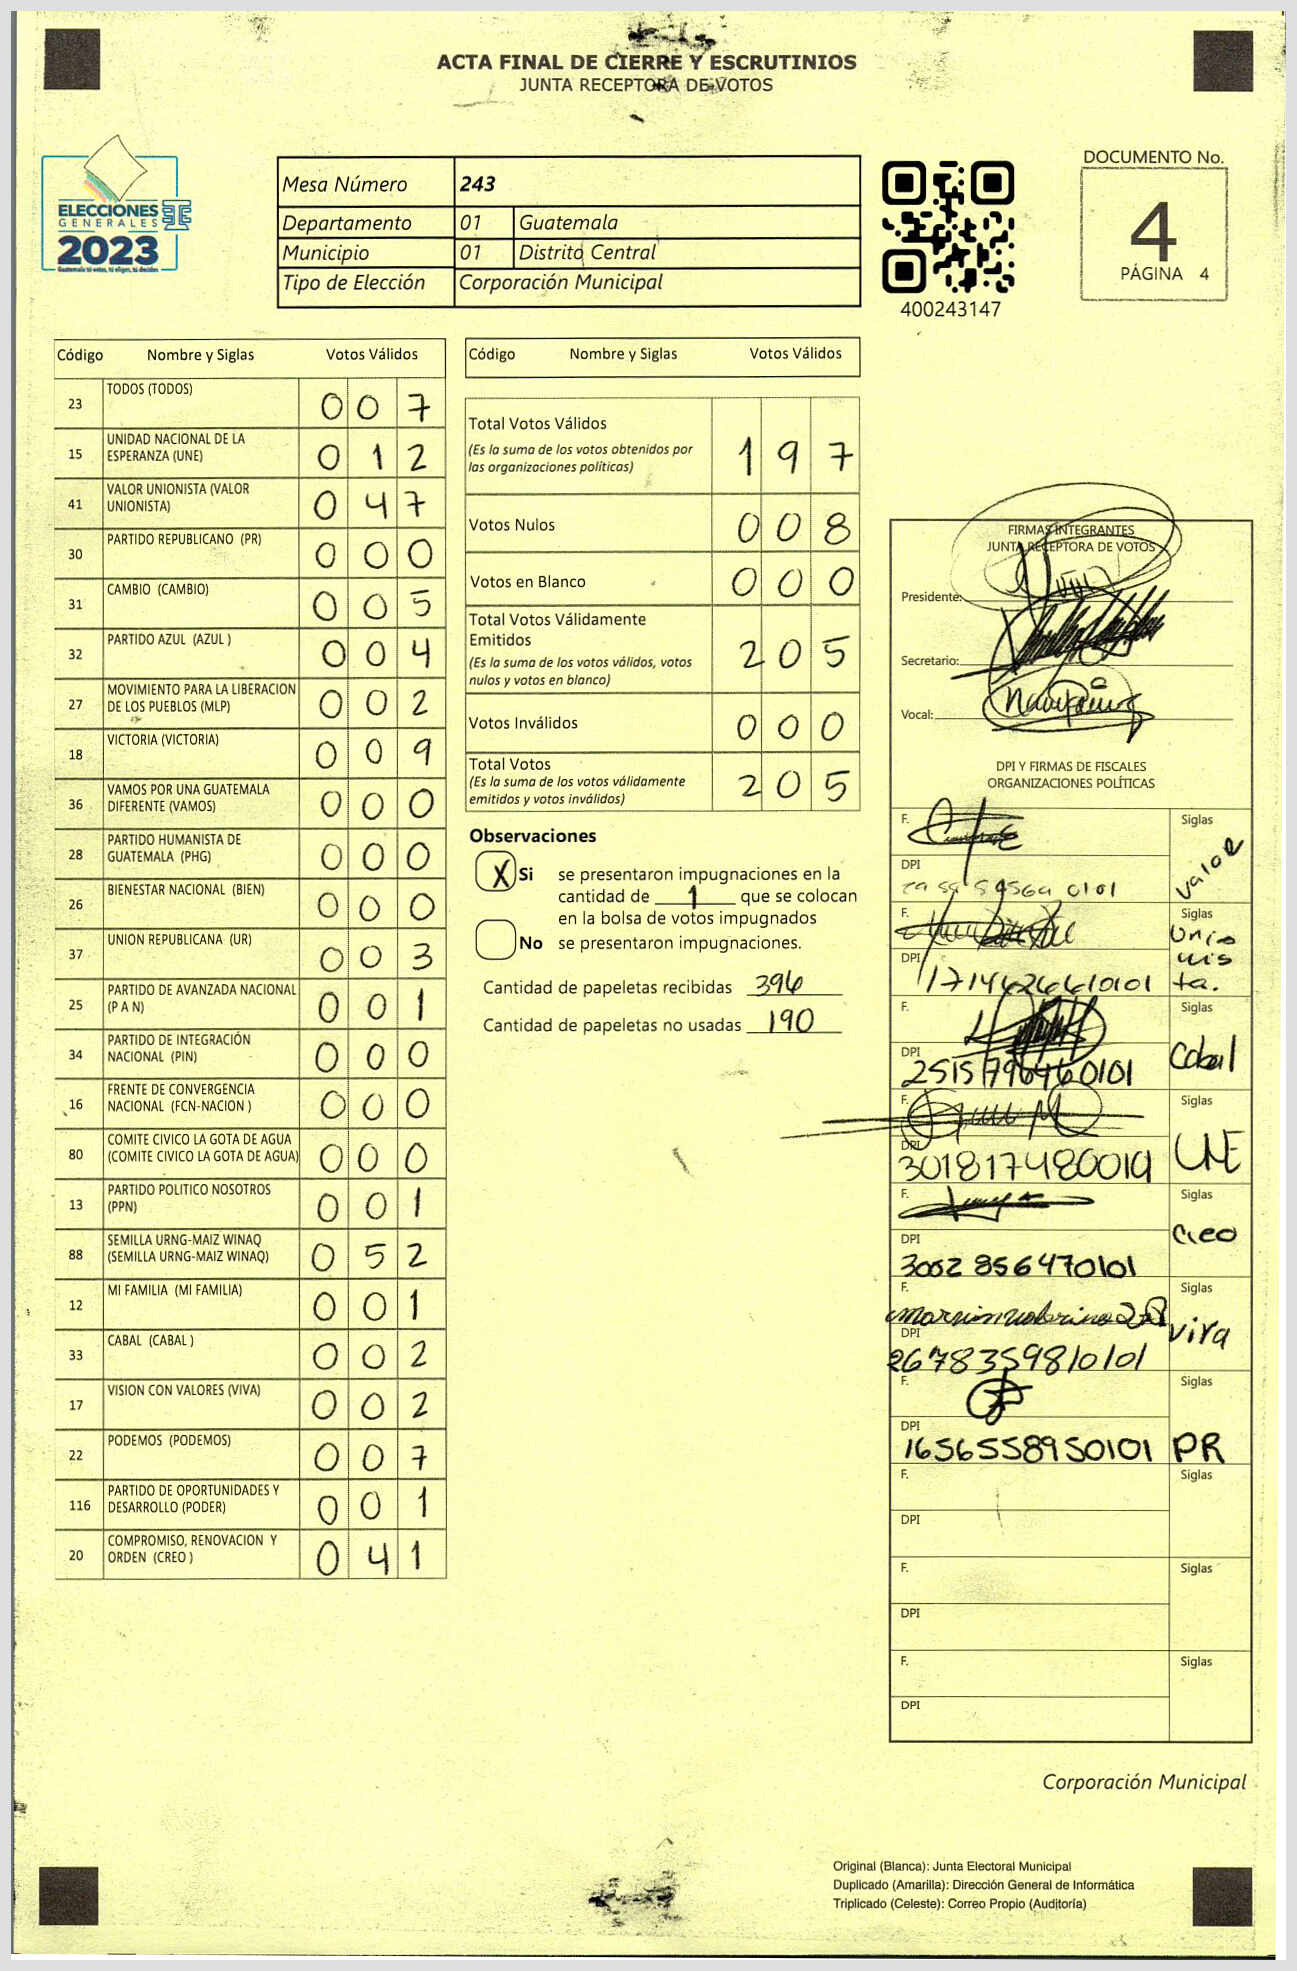 ACTA FINAL DE CIERRE Y ESCRUTINIOS
JUNTA RECEPTORA DE VOTOS
ELECCIONES
GENERALES
2023
Guatemala tú votas, tú eliges, tú decides
Mesa Número 243
Departamento 01 Guatemala
Municipio 01 Distrito Central
Tipo de Elección Corporación Municipal
400243147
DOCUMENTO No.
4
PÁGINA 4
Código Nombre y Siglas Votos Válidos
23 TODOS (TODOS) 0 0 7
15 UNIDAD NACIONAL DE LA
ESPERANZA (UNE) 0 1 2
41 VALOR UNIONISTA (VALOR
UNIONISTA) 0 4 7
30 PARTIDO REPUBLICANO (PR) 0 0 0
31 CAMBIO (CAMBIO) 0 0 5
32 PARTIDO AZUL (AZUL ) 0 0 4
27 MOVIMIENTO PARA LA LIBERACION
DE LOS PUEBLOS (MLP) 0 0 2
18 VICTORIA (VICTORIA) 0 0 9
36 VAMOS POR UNA GUATEMALA
DIFERENTE (VAMOS) 0 0 0
28 PARTIDO HUMANISTA DE
GUATEMALA (PHG) 0 0 0
26 BIENESTAR NACIONAL (BIEN) 0 0 0
37 UNION REPUBLICANA (UR) 0 0 3
25 PARTIDO DE AVANZADA NACIONAL
(P A N) 0 0 1
34 PARTIDO DE INTEGRACIÓN
NACIONAL (PIN) 0 0 0
16 FRENTE DE CONVERGENCIA
NACIONAL (FCN-NACION ) 0 0 0
80 COMITE CIVICO LA GOTA DE AGUA
(COMITE CIVICO LA GOTA DE AGUA) 0 0 0
13 PARTIDO POLITICO NOSOTROS
(PPN) 0 0 1
88 SEMILLA URNG-MAIZ WINAQ
(SEMILLA URNG-MAIZ WINAQ) 0 5 2
12 MI FAMILIA (MI FAMILIA) 0 0 1
33 CABAL (CABAL ) 0 0 2
17 VISION CON VALORES (VIVA) 0 0 2
22 PODEMOS (PODEMOS) 0 0 7
116 PARTIDO DE OPORTUNIDADES Y
DESARROLLO (PODER) 0 0 1
20 COMPROMISO, RENOVACION Y
ORDEN (CREO ) 0 4 1
Código Nombre y Siglas Votos Válidos
Total Votos Válidos
(Es la suma de los votos obtenidos por
las organizaciones políticas) 1 9 7
Votos Nulos 0 0 8
Votos en Blanco 0 0 0
Total Votos Válidamente
Emitidos
(Es la suma de los votos válidos, votos
nulos y votos en blanco) 2 0 5
Votos Inválidos 0 0 0
Total Votos
(Es la suma de los votos válidamente
emitidos y votos inválidos) 2 0 5
Observaciones
X Si se presentaron impugnaciones en la
cantidad de 1 que se colocan
en la bolsa de votos impugnados
No se presentaron impugnaciones.
Cantidad de papeletas recibidas 396
Cantidad de papeletas no usadas 190
FIRMAS INTEGRANTES
JUNTA RECEPTORA DE VOTOS
Presidente:
Secretario:
Vocal:
DPI Y FIRMAS DE FISCALES
ORGANIZACIONES POLÍTICAS
F. Siglas
valor
DPI
F. Siglas
Unio
nis
ta.
DPI 1714626610101
F. Siglas
Cabal
DPI
2515796460101
F. Siglas
UNE
DPI
301817480019
F. Siglas
creo
DPI
3002856470101
F. Siglas
viva
DPI
2678359810101
F. Siglas
DPI
1656558950101 PR
F. Siglas
DPI
F. Siglas
DPI
F. Siglas
DPI
Corporación Municipal
Original (Blanca): Junta Electoral Municipal
Duplicado (Amarilla): Dirección General de Informática
Triplicado (Celeste): Correo Propio (Auditoría)